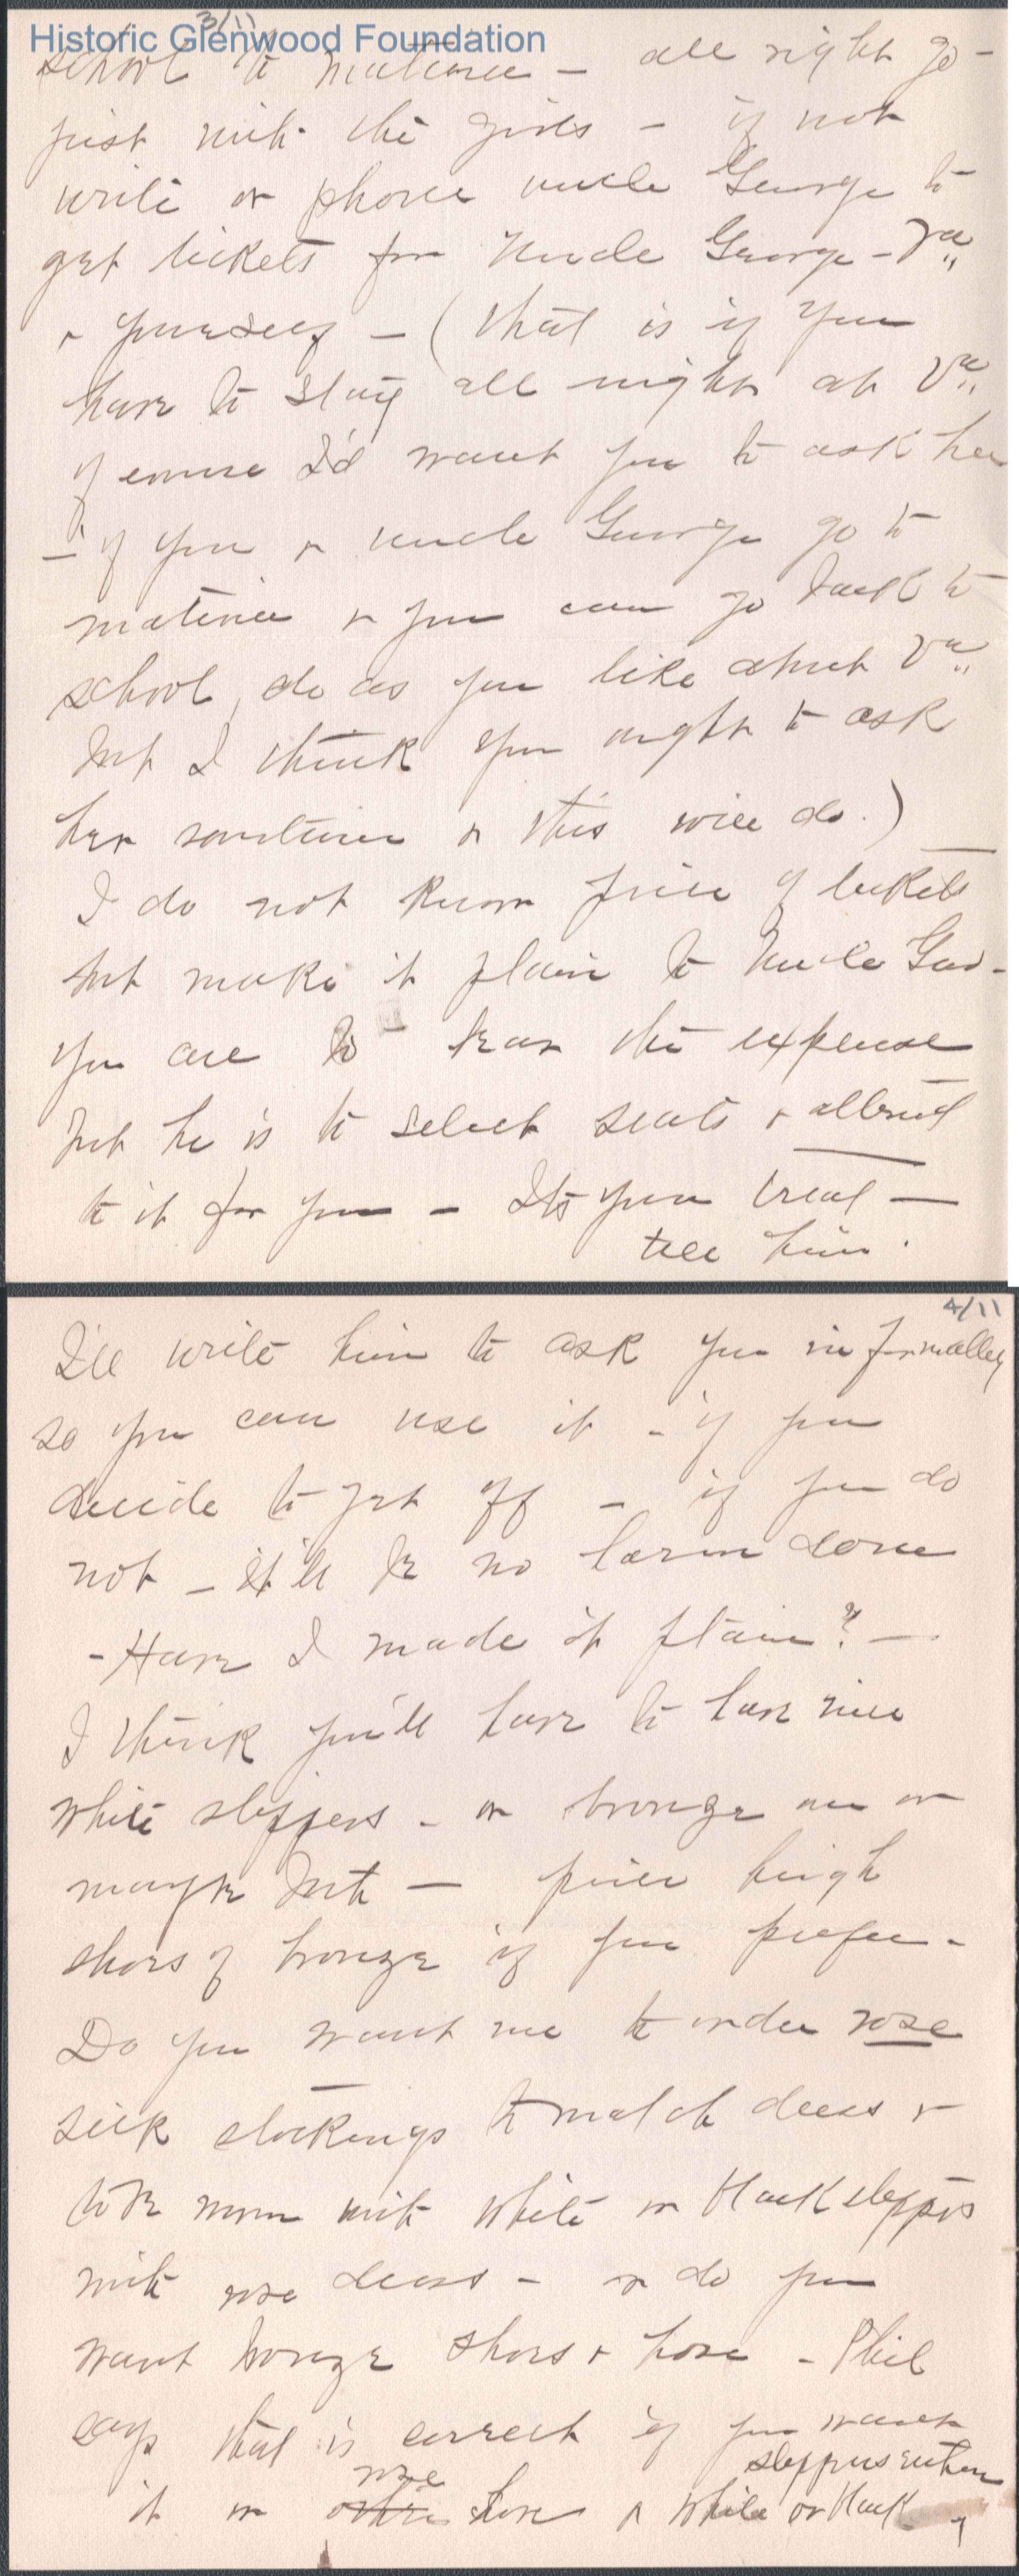 3/11
Historic Glenwood Foundation
school to matinee – all right go –
just with the girls – if not
write or phone uncle George to
get tickets for Uncle George – Va,,
& yourself – (that is if you
have to stay all night at Va,,
of course I'd want you to ask her
– if you & uncle George go to
matinee & you can go back to
school, do as you like about Va,,
but I think you ought to ask
her sometime & this will do.) —
I do not know price of tickets
but make it plain to Uncle Geo –
you are to bear the expense
but he is to select seats & attend
to it for you – Its your treat —
tell him.
4/11
I'll write him to ask you informally
so you can use it – if you
decide to get off – if you do
not – it'll be no harm done
– Have I made it plain? —
I think you'll have to have nice
white slippers – or bronze one or
maybe both — high
shoes of bronze if you prefer –
Do you want me to order rose
silk stockings to match dress &
to be worn with white or black slippers
with rose dress – or do you
want bronze shoes & hose – Phil
says that is correct if you want
it or rose hose & white or black slippers either